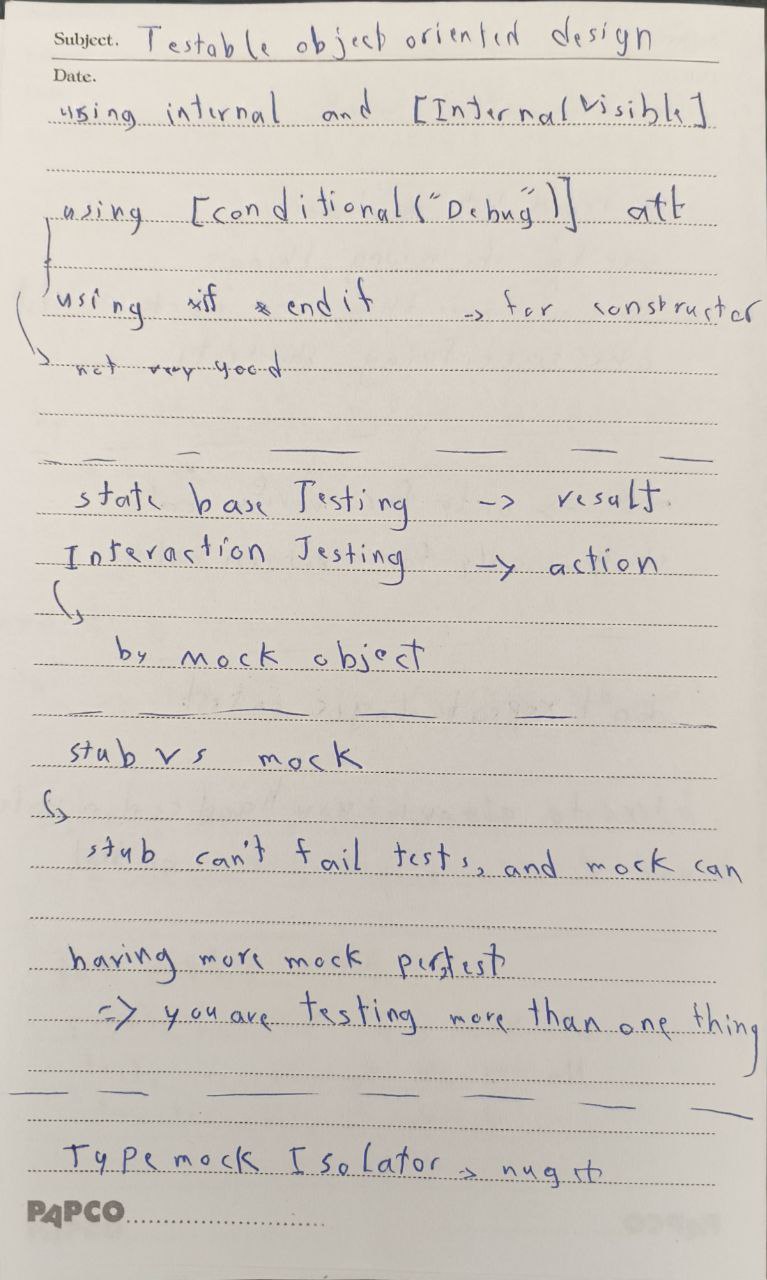 Subject. Testable object oriented design
Date.
using internal and [InternalVisible]
using [conditional("Debug")] att
using #if # endif -> for constructer
not very good
state base Testing -> result.
Interaction Testing -> action
by mock object
stub vs mock
stub can't fail tests, and mock can
having more mock per test
=> you are testing more than one thing
Typemock Isolator -> nuget
PAPCO